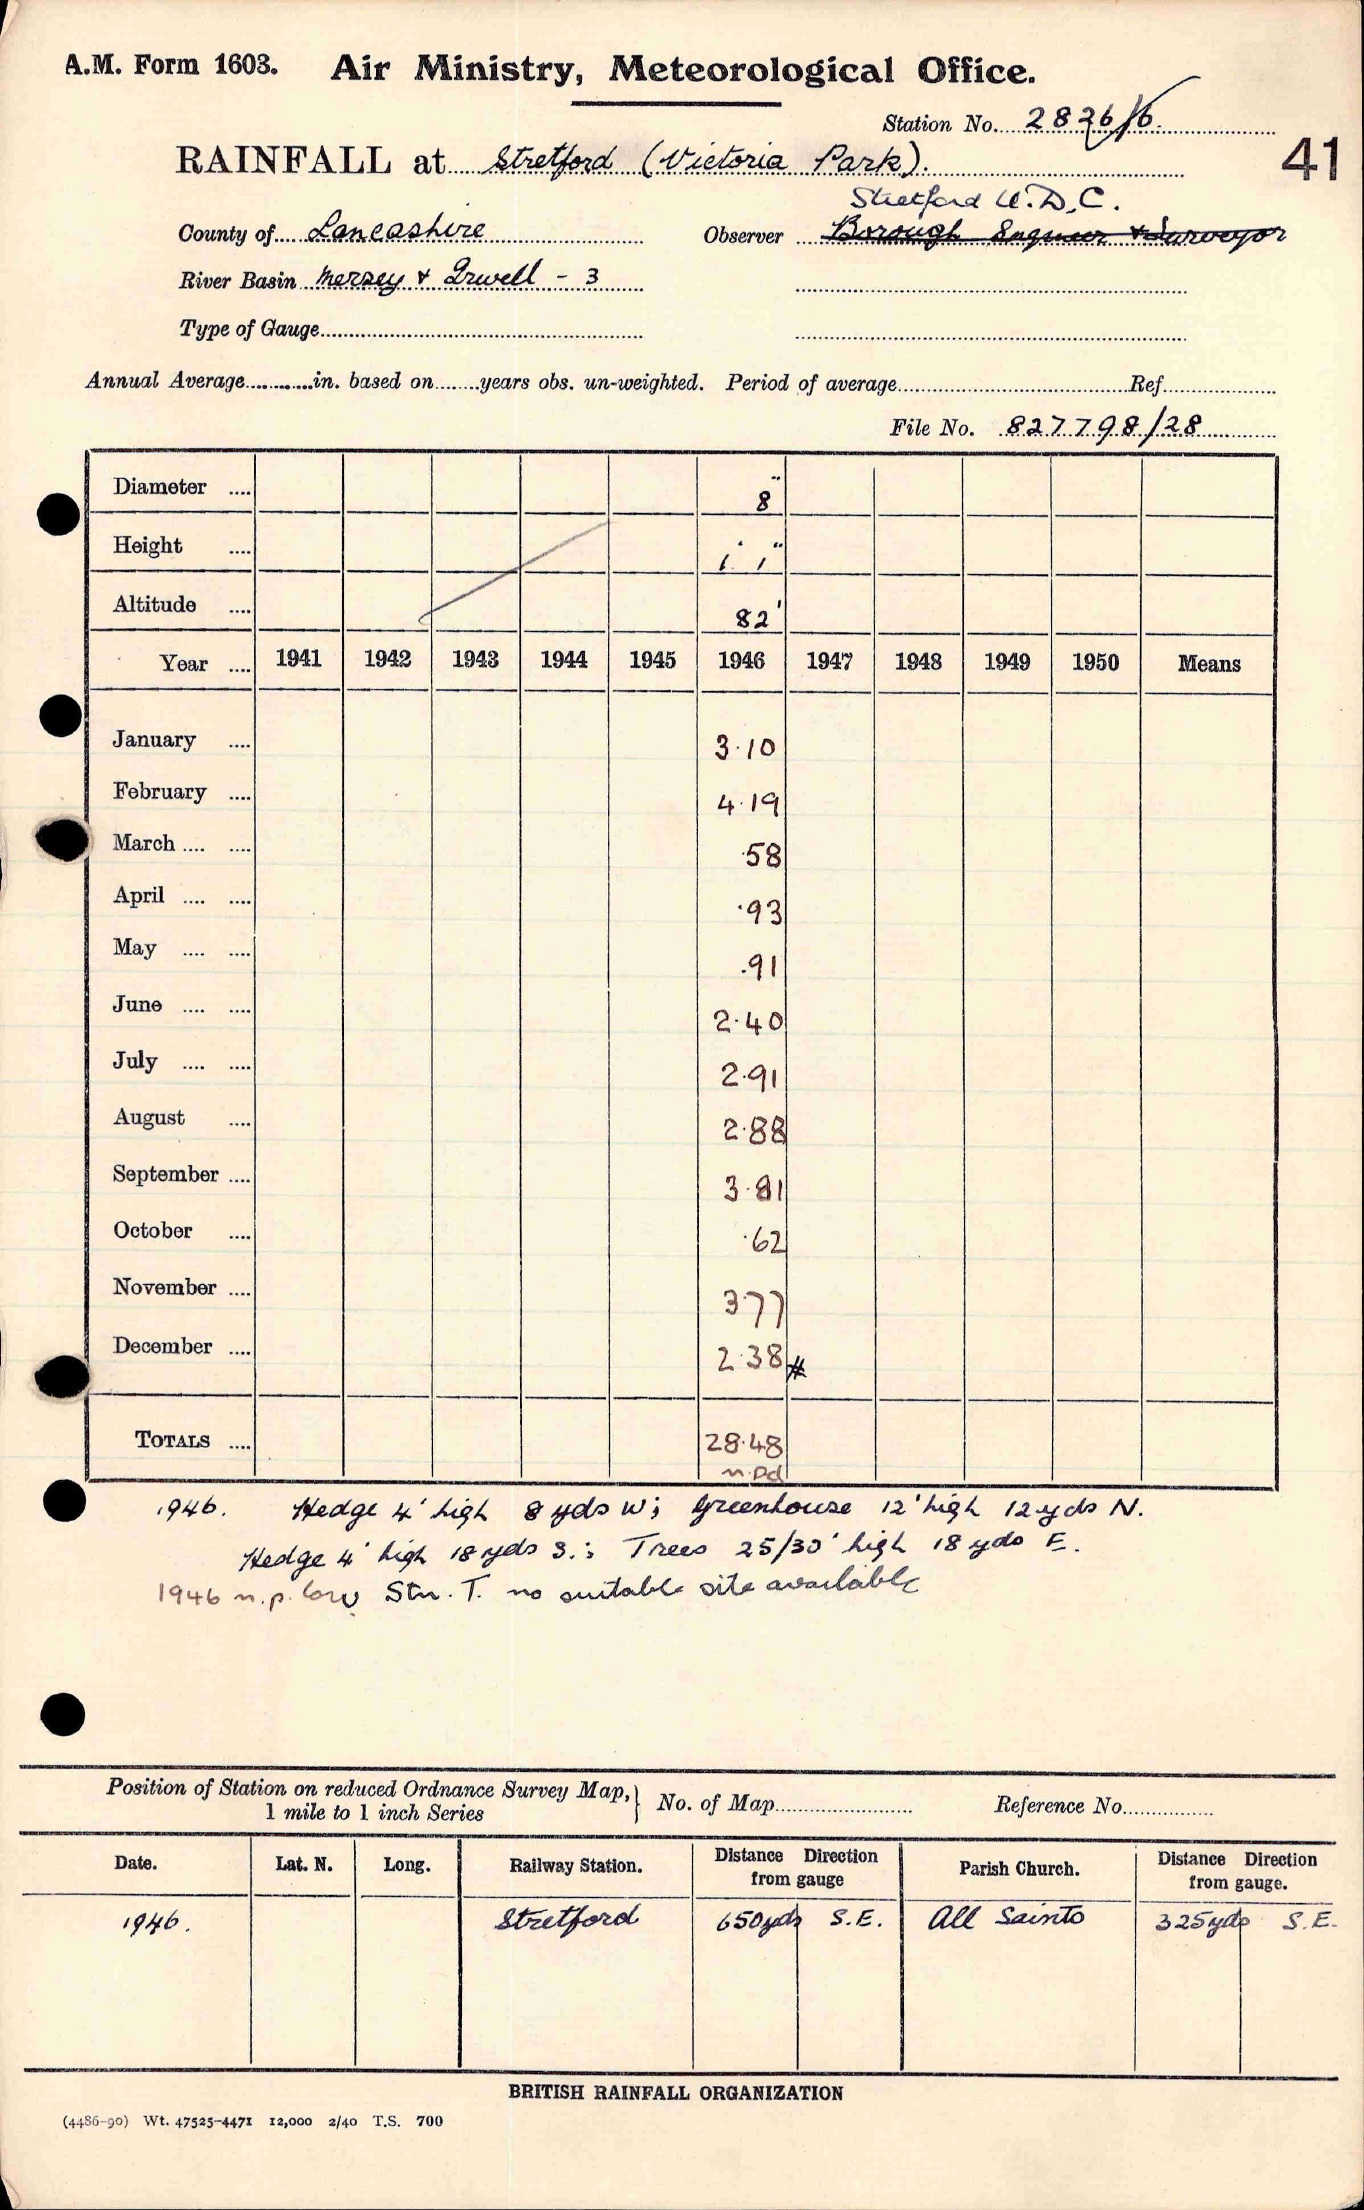 A.M. Form 1603. Air Ministry, Meteorological Office.
Station No. 2826/6
41
RAINFALL at Stretford (Victoria Park).
Stretford U.D.C.
County of Lancashire Observer Borough Engineer & Surveyor
River Basin Mersey & Irwell - 3
Type of Gauge
Annual Average in. based on years obs. un-weighted. Period of average Ref.
File No. 827798/28
Diameter .... 8"
Height .... 1' 1"
Altitude .... 82'
Year .... 1941 1942 1943 1944 1945 1946 1947 1948 1949 1950 Means
January .... 3·10
February .... 4·19
March .... .... ·58
April .... .... ·93
May .... .... ·91
June .... .... 2·40
July .... .... 2·91
August .... 2·88
September .... 3·81
October .... ·62
November .... 3·77
December .... 2·38 #
TOTALS .... 28·48
n.pd
1946. Hedge 4' high 8 yds W; Greenhouse 12' high 12 yds N.
Hedge 4' high 18 yds S.; Trees 25/30' high 18 yds E.
1946 n.p. low Stn. T. no suitable site available
Position of Station on reduced Ordnance Survey Map, } No. of Map Reference No.
1 mile to 1 inch Series
Date. Lat. N. Long. Railway Station. Distance Direction from gauge Parish Church. Distance Direction from gauge.
1946. Stretford 650 yds S.E. All Saints 325 yds S.E.
BRITISH RAINFALL ORGANIZATION
(4486-90) Wt. 47525-4471 12,000 2/40 T.S. 700